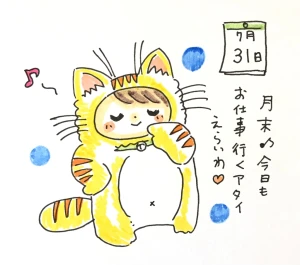 7月
31日
月末の今日も
お仕事行くアタイ
えらいわ♥